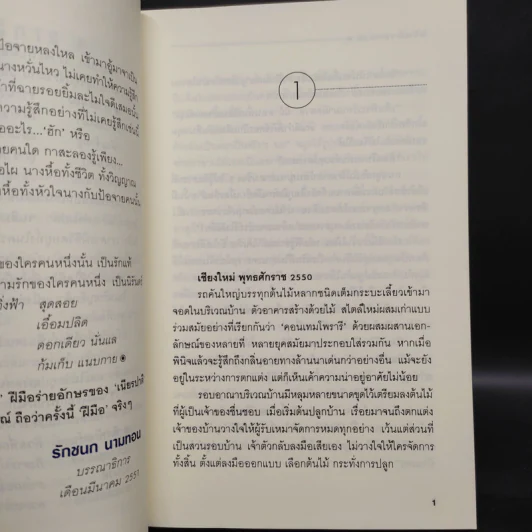 ปัอจายหลงใหล เข้ามาอู้มาจาเป็น
นางหวั่นไหว ไม่เคยทำให้ความรู้สึก
ที่ฉายรอยยิ้มละไมใจดีเสมอนั้น
ความรู้สึกอย่างที่ไม่เคยรู้สึกเช่นนี้
ออะไร...‘ฮัก’ หรือ
ายคนใด กาสะลองรู้เพียง...
อไผ นางหื้อทั้งชีวิต ทั้งวิญญาณ
หื้อทั้งหัวใจนางกับป้อจายคนนั้น
ของใครคนหนึ่งนั้น เป็นรักแท้
ามรักของใครคนหนึ่ง เป็นนิรันดร์
ิ่งฟ้า สุดสอย
เอื้อมปลิด
ดอกเดียว นั่นแล
ก้มเก็บ แนบกาย
ฝีมือร่ายอักษรของ
ถือว่าครั้งนี้ ‘ฝีมือ’ จริงๆ
รักชนก นามทอน
บรรณาธิการ
เดือนมีนาคม
1
เชียงใหม่ พุทธศักราช 2550
รถคันใหญ่บรรทุกต้นไม้หลากชนิดเต็มกระบะเลี้ยวเข้ามา
จอดในบริเวณบ้าน ตัวอาคารสร้างด้วยไม้ สไตล์ใหม่ผสมเก่าแบบ
ร่วมสมัยอย่างที่เรียกกันว่า ‘คอนเทมโพรารี’ ด้วยผสมผสานเอก-
ลักษณ์ของหลายที่ หลายยุคสมัยมาประกอบใส่รวมกัน หากเมื่อ
พินิจแล้วจะรู้สึกถึงกลิ่นอายทางล้านนาเด่นกว่าอย่างอื่น แม้จะยัง
อยู่ในระหว่างการตกแต่ง แต่ก็เห็นเค้าความน่าอยู่อาศัยไม่น้อย
รอบอาณาบริเวณบ้านมีหลุมหลายขนาดขุดไว้เตรียมลงต้นไม้
ที่ผู้เป็นเจ้าของชื่นชอบ เมื่อเริ่มต้นปลูกบ้าน เรื่อยมาจนถึงตกแต่ง
เจ้าของบ้านวางใจให้ผู้รับเหมาจัดการหมดทุกอย่าง เว้นแต่ส่วนที่
เป็นสวนรอบบ้าน เจ้าตัวกลับลงมือเสียเอง ไม่วางใจให้ใครจัดการ
ทั้งสิ้น ตั้งแต่ลงมือออกแบบ เลือกต้นไม้ กระทั่งการปลูก
1